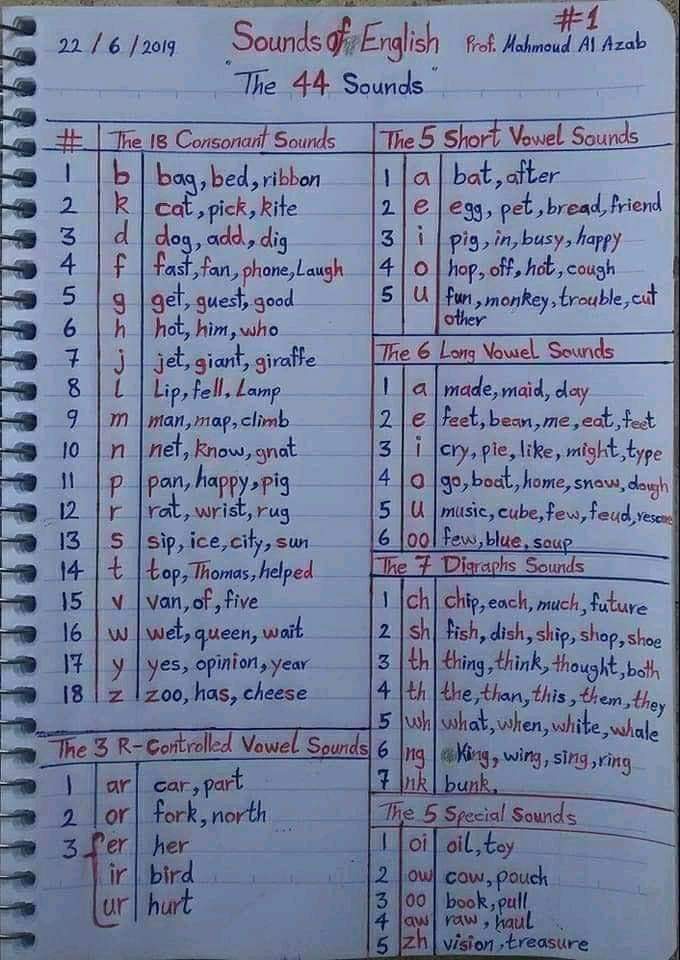 #1
22/6/2019 Sounds of English Prof. Mahmoud Al Azab
"The 44 Sounds"
# The 18 Consonant Sounds
1 b bag, bed, ribbon
2 k cat, pick, kite
3 d dog, add, dig
4 f fast, fan, phone, Laugh
5 g get, guest, good
6 h hot, him, who
7 j jet, giant, giraffe
8 L Lip, fell, Lamp
9 m man, map, climb
10 n net, know, gnat
11 p pan, happy, pig
12 r rat, wrist, rug
13 s sip, ice, city, sun
14 t top, Thomas, helped
15 v van, of, five
16 w wet, queen, wait
17 y yes, opinion, year
18 z zoo, has, cheese
The 3 R-Controlled Vowel Sounds
1 ar car, part
2 or fork, north
3 er her
ir bird
ur hurt
The 5 Short Vowel Sounds
1 a bat, after
2 e egg, pet, bread, friend
3 i pig, in, busy, happy
4 o hop, off, hot, cough
5 u fun, monkey, trouble, cut
other
The 6 Long Vowel Sounds
1 a made, maid, day
2 e feet, bean, me, eat, feet
3 i cry, pie, like, might, type
4 o go, boat, home, snow, dough
5 u music, cube, few, feud, rescue
6 oo few, blue, soup
The 7 Digraphs Sounds
1 ch chip, each, much, future
2 sh fish, dish, ship, shop, shoe
3 th thing, think, thought, both
4 th the, than, this, them, they
5 wh what, when, white, whale
6 ng King, wing, sing, ring
7 nk bunk,
The 5 Special Sounds
1 oi oil, toy
2 ow cow, pouch
3 oo book, pull
4 aw raw, haul
5 zh vision, treasure